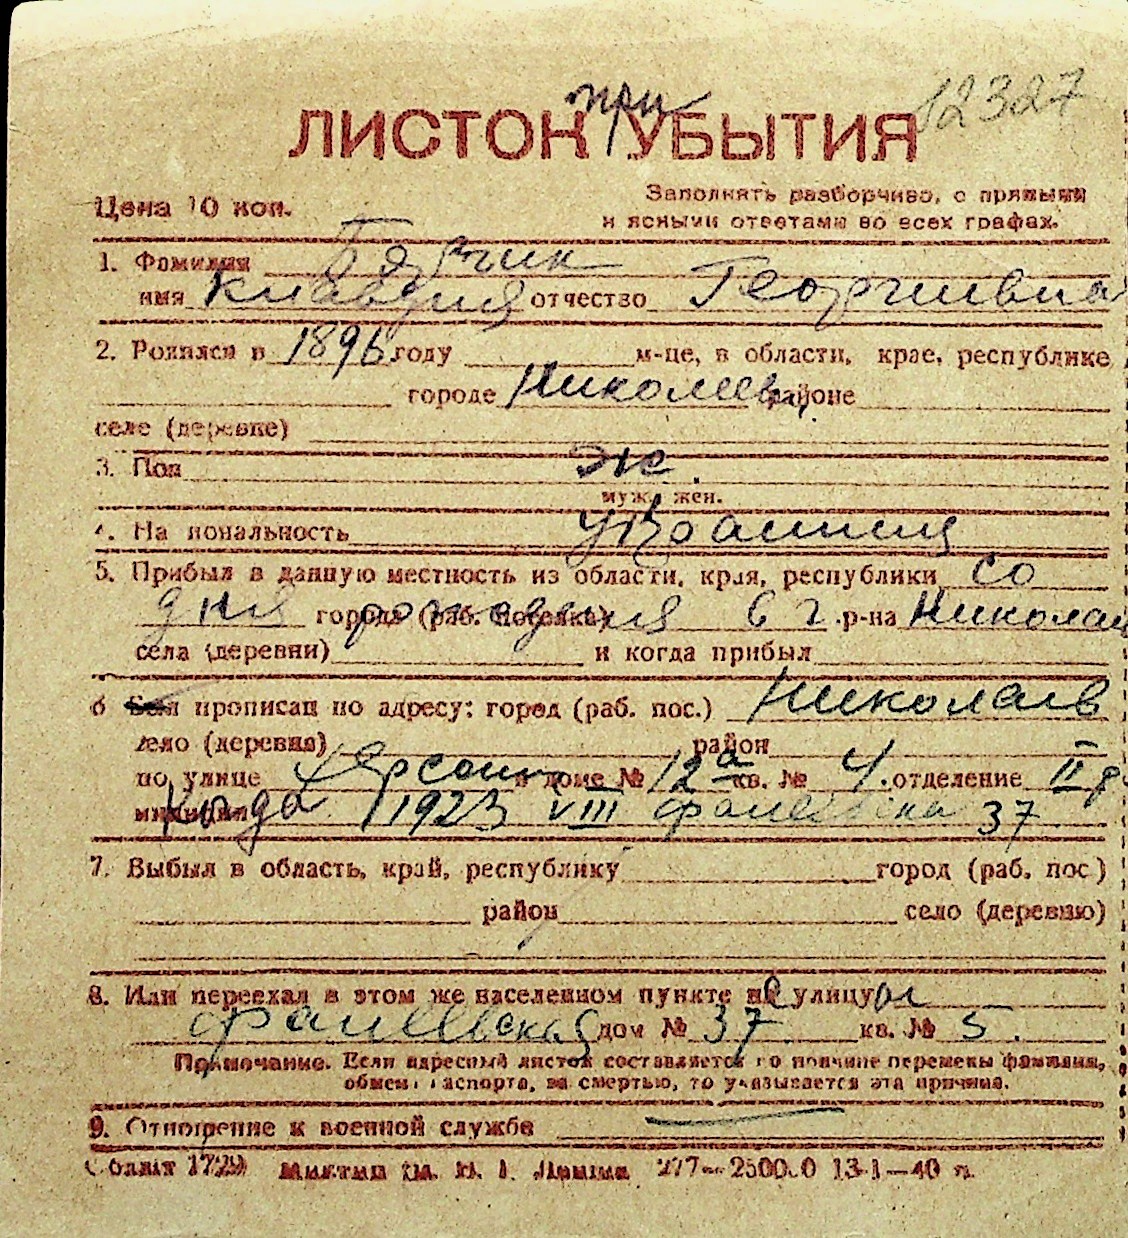 при 12327
ЛИСТОК УБЫТИЯ
Цена 10 коп.
Заполнять разборчиво, с прямыми
и ясными ответами во всех графах.
1. Фамилия
имя Клавдия отчество Георгиевна
2. Родился в 1896 году м-це, в области, крае, республике
городе Николаев районе
селе (деревне)
3. Пол Ж.
муж. жен.
4. Национальность Украинка
5. Прибыл в данную местность из области, края, республики со
дня города (раб. поселка) рождения в г. р-на Николаев
села (деревни) и когда прибыл
6 Был прописан по адресу: город (раб. пос.) Николаев
село (деревня) район
по улице Херсонск в доме № 12а кв. № 4. отделение II
милиции 1923 VIII 37
7. Выбыл в область, край, республику город (раб. пос)
район село (деревню)
8. Или переехал в этом же населенном пункте на улицу
Фалеевская дом № 37 кв. № 5.
Примечание. Если адресный листок составляется по причине перемены фамилии,
обмена паспорта, за смертью, то указывается эта причина.
9. Отношение к военной службе
Облліт 1729 277—250000 13-1—40 п.